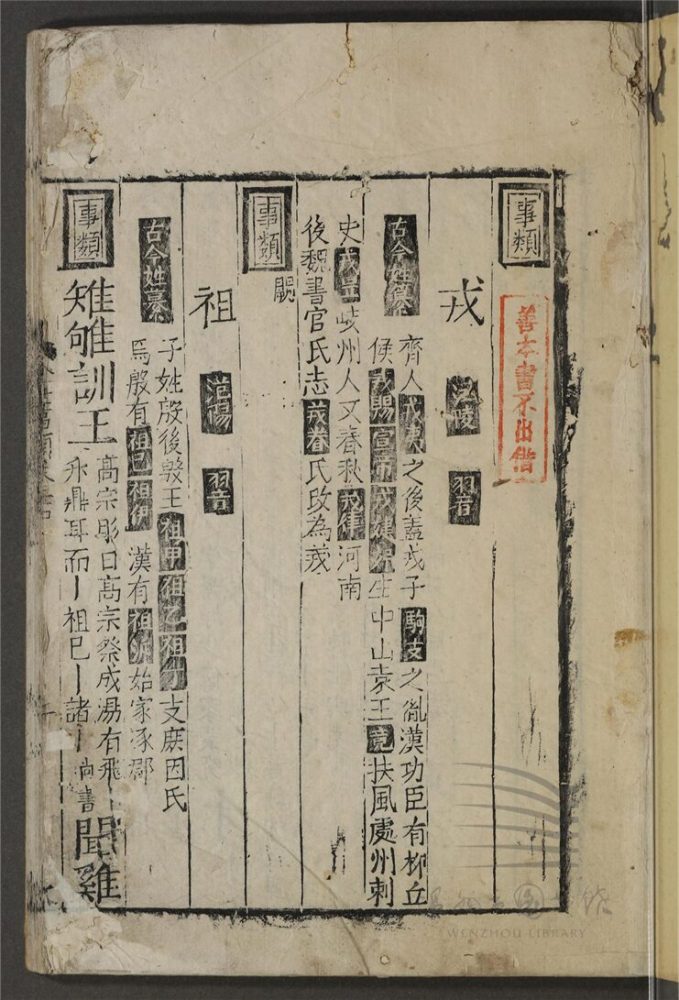 事類
善本書不出借
戎 江陵 羽音
古今姓纂 齊人戎夷之後蓋戎子駒支之胤漢功臣有柳丘
侯戎賜宣帝戎婕妤生中山哀王竟扶風處州刺
史戎昱岐州人又春秋戎律河南
後魏書官氏志戎眷氏改為戎
事類 闕
祖 范陽 羽音
古今姓纂 子姓殷後殷王祖甲祖乙祖丁支庶因氏
焉殷有祖巳祖伊 漢有祖沂始家涿郡
事類 雉雊訓王 高宗肜日高宗祭成湯有飛
升鼎耳而丨祖巳丨諸丨尚書 聞雞
WENZHOU LIBRARY